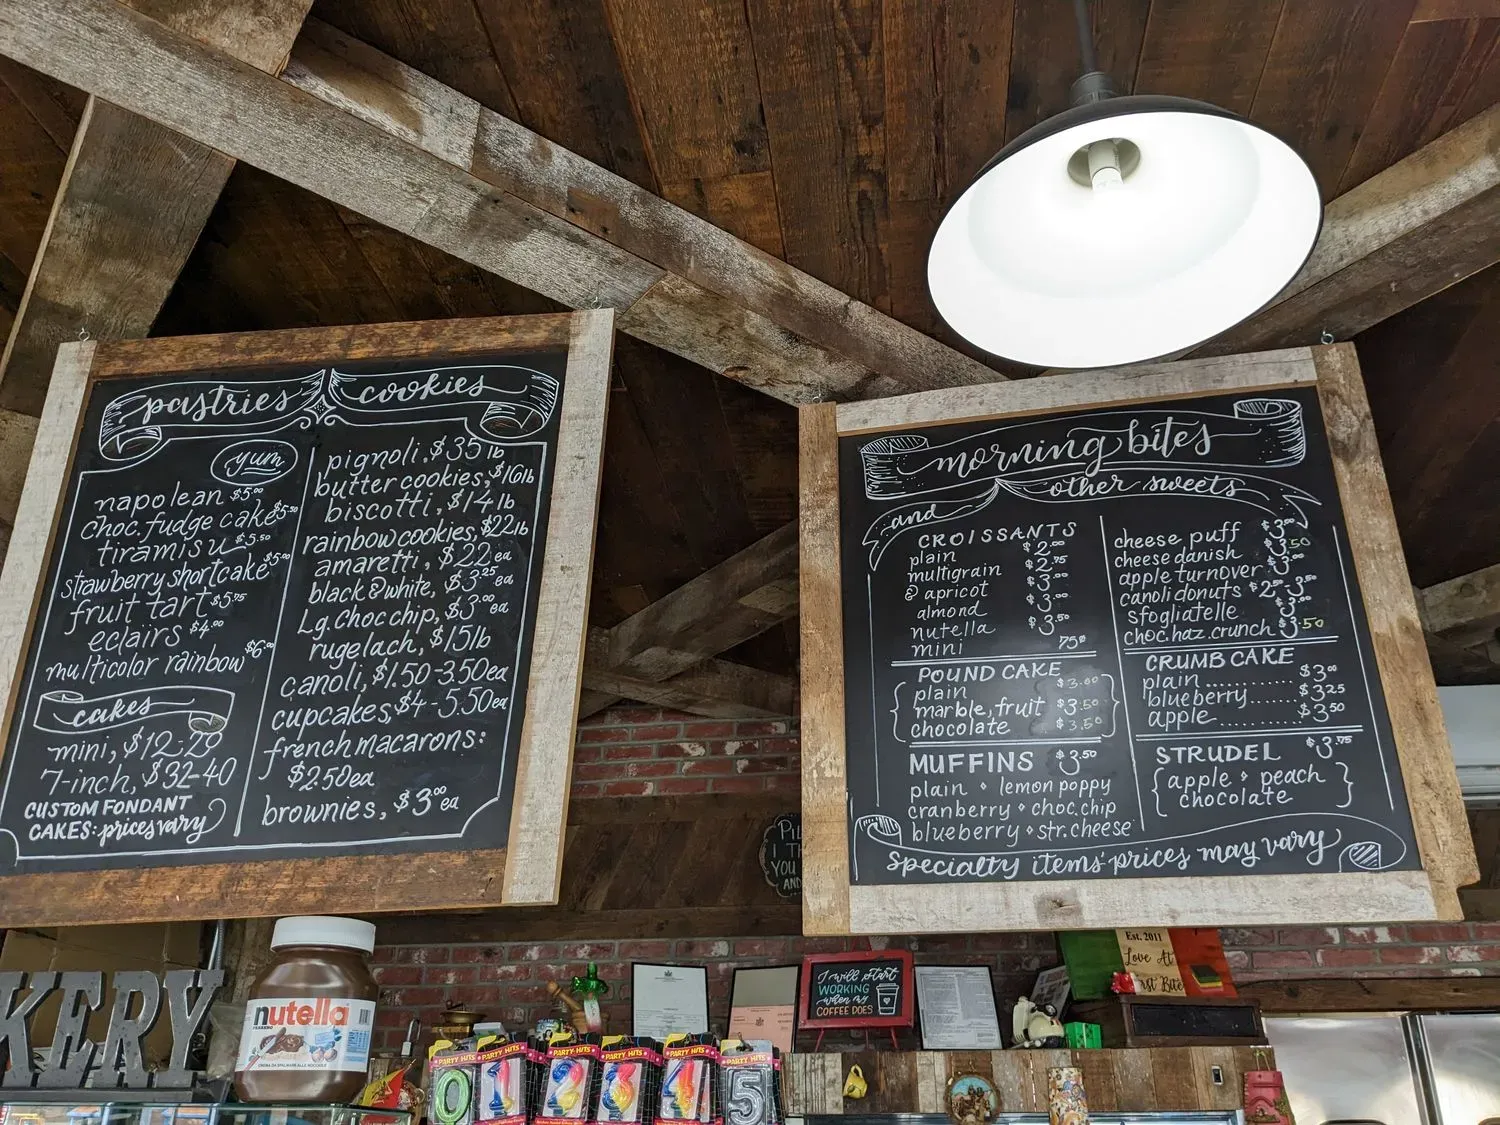 pastries
cookies
yum
napolean $5.00
choc. fudge cake $5.50
tiramisu $5.50
strawberry shortcake $5.00
fruit tart $5.75
eclairs $4.00
multicolor rainbow $6.00
cakes
mini, $12-29
7-inch, $32-40
CUSTOM FONDANT
CAKES: prices vary
pignoli, $35 lb
butter cookies, $16 lb
biscotti, $14 lb
rainbow cookies, $22 lb
amaretti, $22 ea
black & white, $3.25 ea
Lg. Choc chip, $3.00 ea
rugelach, $15 lb
canoli, $1.50-3.50 ea
cupcakes, $4-5.50 ea
french macarons:
$2.50 ea
brownies, $3.00 ea
morning bites
and other sweets
CROISSANTS
plain $2.00
multigrain $2.75
& apricot $3.00
almond $3.00
nutella $3.50
mini 75¢
POUND CAKE
plain $3.00
marble, fruit $3.50
chocolate $3.50
MUFFINS $3.50
plain lemon poppy
cranberry choc. chip
blueberry str. cheese
cheese puff $3.00
cheese danish $3.50
apple turnover $3.00
canoli donuts $2.50-3.50
sfogliatelle $3.00
choc. haz. crunch $3.50
CRUMB CAKE
plain.......... $3.00
blueberry...... $3.25
apple.......... $3.50
STRUDEL $3.75
apple peach
chocolate
specialty items' prices may vary
KERY
nutella
FERRERO
CREMA DA SPALMARE ALLE NOCCIOLE
PARTY HITS
PARTY HITS
PARTY HITS
PARTY HITS
PARTY HITS
PARTY HITS
0
1
2
3
4
5
I will start
WORKING
when my
COFFEE DOES
Est. 2011
Love At
Bite
I
YOU
AND